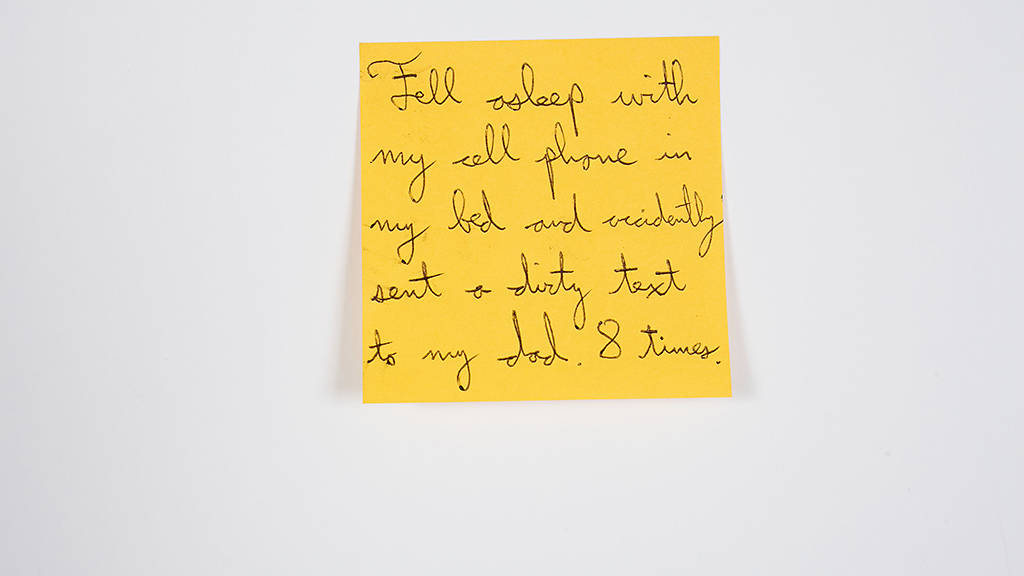 Fell asleep with
my cell phone in
my bed and accidently
sent a dirty text
to my dad. 8 times.